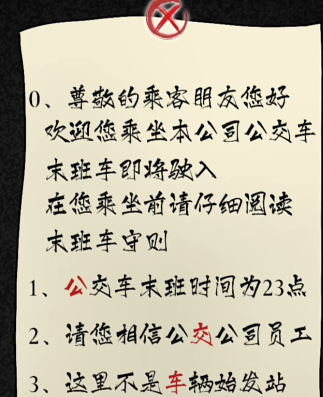 0、尊敬的乘客朋友您好
欢迎您乘坐本公司公交车
末班车即将驶入
在您乘坐前请仔细阅读
末班车守则
1、公交车末班时间为23点
2、请您相信公交公司员工
3、这里不是车辆始发站